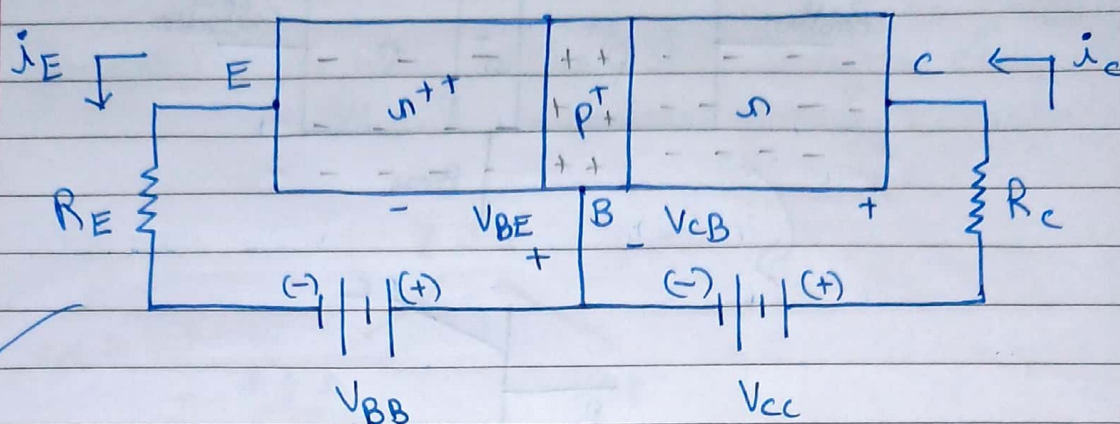 iE E n++ p+ n C ic
RE - VBE + B - VCB + Rc
(-) (+) (-) (+)
VBB VCC